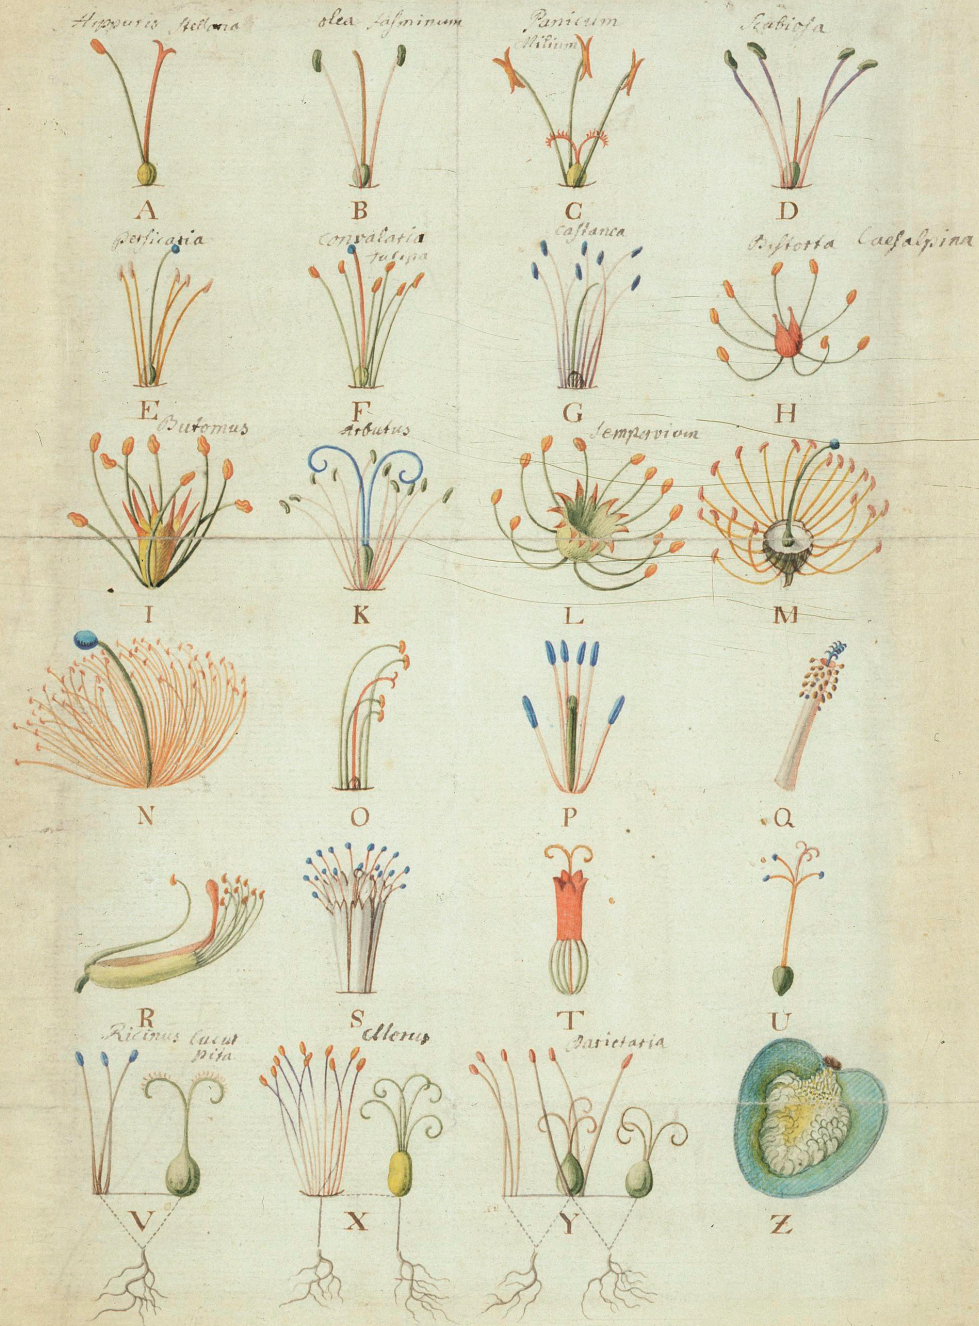 Hippuris Stellaria olea Jasminum Panicum Scabiosa
Milium
A B C D
Persicaria Convalaria Castanea Bistorta Caesalpina
tulipa
E F G H
Butomus Arbutus Sempervivom
I K L M
N O P Q
R S T U
Ricinus Cucur Morus Parietaria
bita
V X Y Z